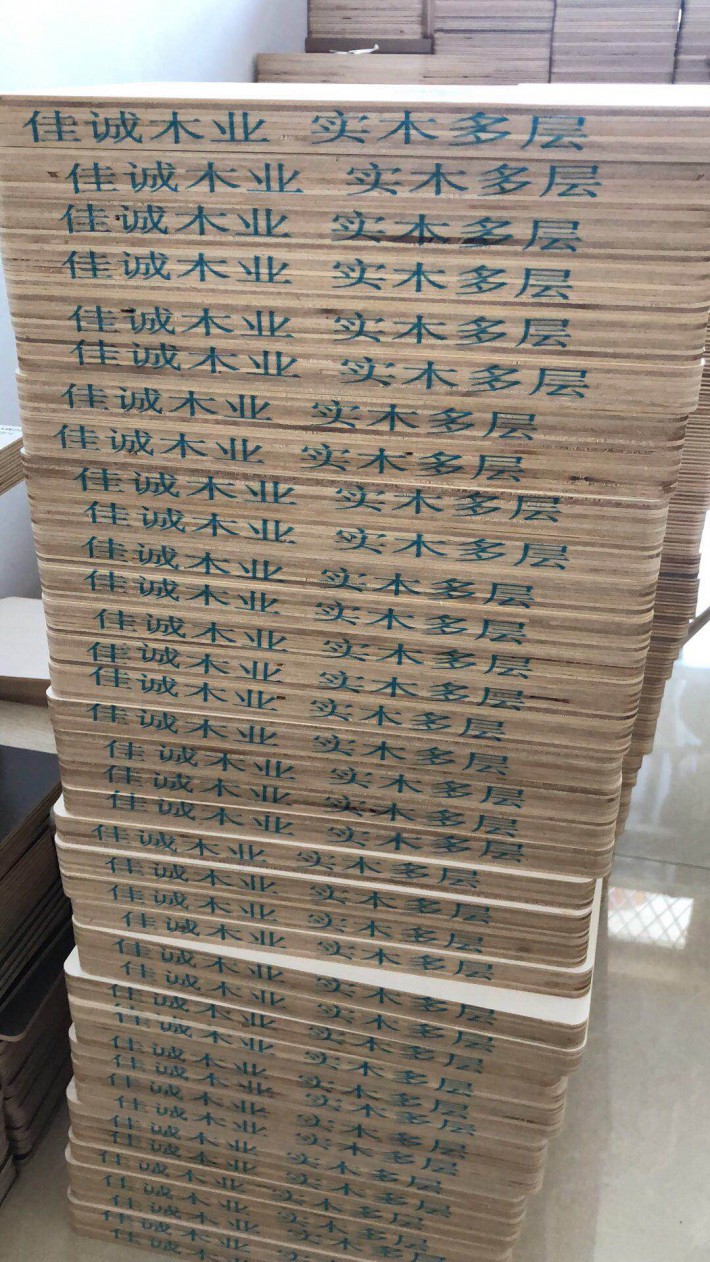 佳诚木业 实木多层
佳诚木业 实木多层
佳诚木业 实木多层
佳诚木业 实木多层
佳诚木业 实木多层
佳诚木业 实木多层
佳诚木业 实木多层
佳诚木业 实木多层
佳诚木业 实木多层
佳诚木业 实木多层
佳诚木业 实木多层
佳诚木业 实木多层
佳诚木业 实木多层
佳诚木业 实木多层
佳诚木业 实木多层
佳诚木业 实木多层
佳诚木业 实木多层
佳诚木业 实木多层
佳诚木业 实木多层
佳诚木业 实木多层
佳诚木业 实木多层
佳诚木业 实木多层
佳诚木业 实木多层
佳诚木业 实木多层
佳诚木业 实木多层
佳诚木业 实木多层
佳诚木业 实木多层
佳诚木业 实木多层
佳诚木业 实木多层
佳诚木业 实木多层
佳诚木业 实木多层
佳诚木业 实木多层
佳诚木业 实木多层
佳诚木业 实木多层
佳诚木业 实木多层
佳诚木业 实木多层